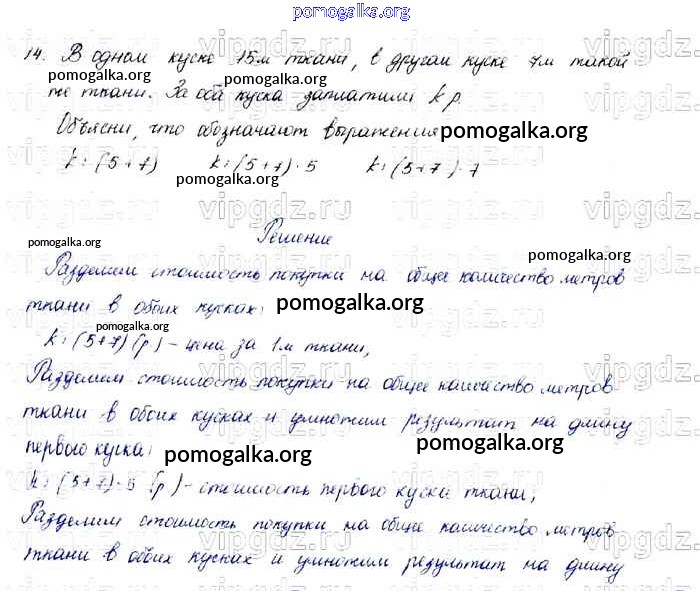 pomogalka.org
14. В одном куске 15м ткани, в другом куске 7м такой
pomogalka.org
же ткани. За оба куска заплатили k р.
Объясни, что обозначают выражения pomogalka.org
k : (5+7) k : (5+7) · 5 k : (5+7) · 7
pomogalka.org
vipgdz.ru
Решение
pomogalka.org
pomogalka.org
Разделим стоимость покупки на общее количество метров
ткани в обоих кусках: pomogalka.org
pomogalka.org
k : (5+7) (р) – цена за 1м ткани;
Разделим стоимость покупки на общее количество метров
ткани в обоих кусках и умножим результат на длину
первого куска: pomogalka.org pomogalka.org
k : (5+7) · 5 (р) – стоимость первого куска ткани;
Разделим стоимость покупки на общее количество метров
ткани в обоих кусках и умножим результат на длину